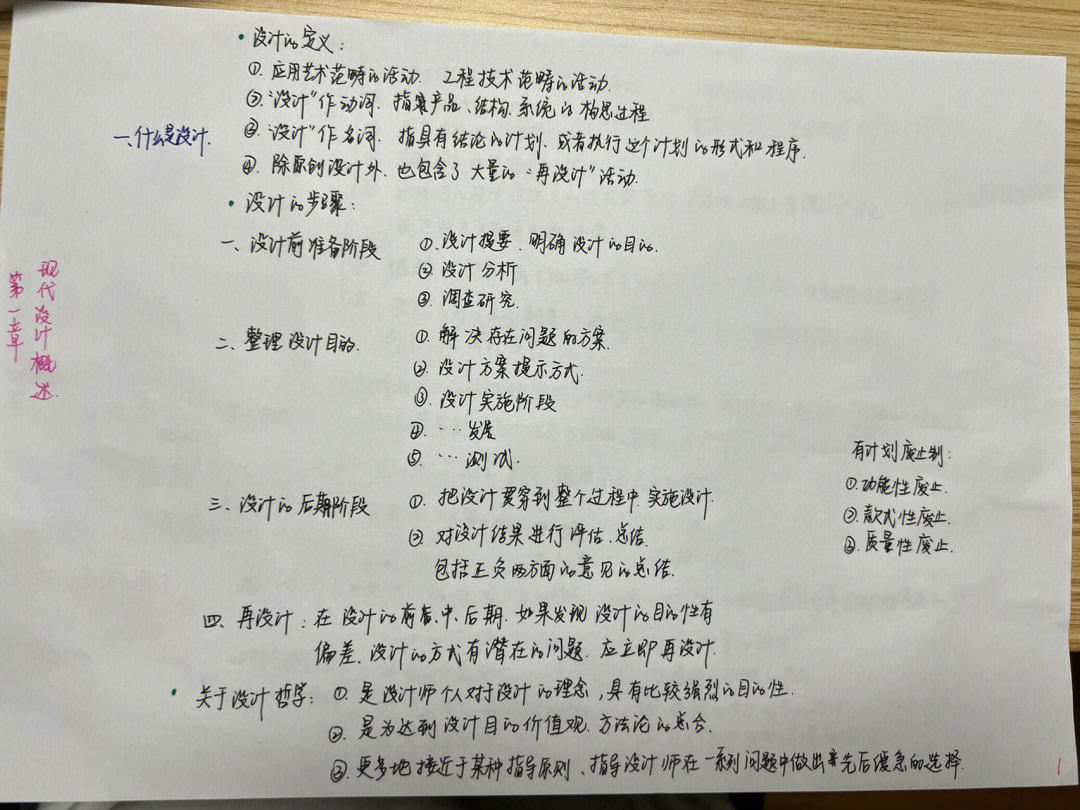 第一章
现代设计概述
一、什么是设计.
• 设计的定义：
①. 应用艺术范畴的活动. 工程技术范畴的活动.
②. “设计”作动词. 指案产品、结构、系统的构思过程
③. “设计”作名词. 指具有结论的计划. 或者执行这个计划的形式和程序.
④. 除原创设计外. 也包含了大量的“再设计”活动.
• 设计的步骤：
一、设计前准备阶段
①. 设计提要. 明确设计的目的.
②. 设计分析
③. 调查研究.
二、整理设计目的.
①. 解决存在问题的方案.
②. 设计方案提示方式.
③. 设计实施阶段
④. …发展
⑤. …测试.
三、设计的后期阶段
①. 把设计贯穿到整个过程中. 实施设计.
②. 对设计结果进行评估、总结.
包括正负两方面的意见的总结.
有计划废止制：
①. 功能性废止.
②. 款式性废止.
③. 质量性废止.
四. 再设计：在设计的前、中、后期. 如果发现设计的目的性有
偏差、设计的方式有潜在的问题. 应立即再设计.
• 关于设计哲学：①. 是设计师个人对于设计的理念，具有比较强烈的目的性.
②. 是为达到设计目的价值观. 方法论的总合.
③. 更多地接近于某种指导原则、指导设计师在一系列问题中做出先后缓急的选择.
1